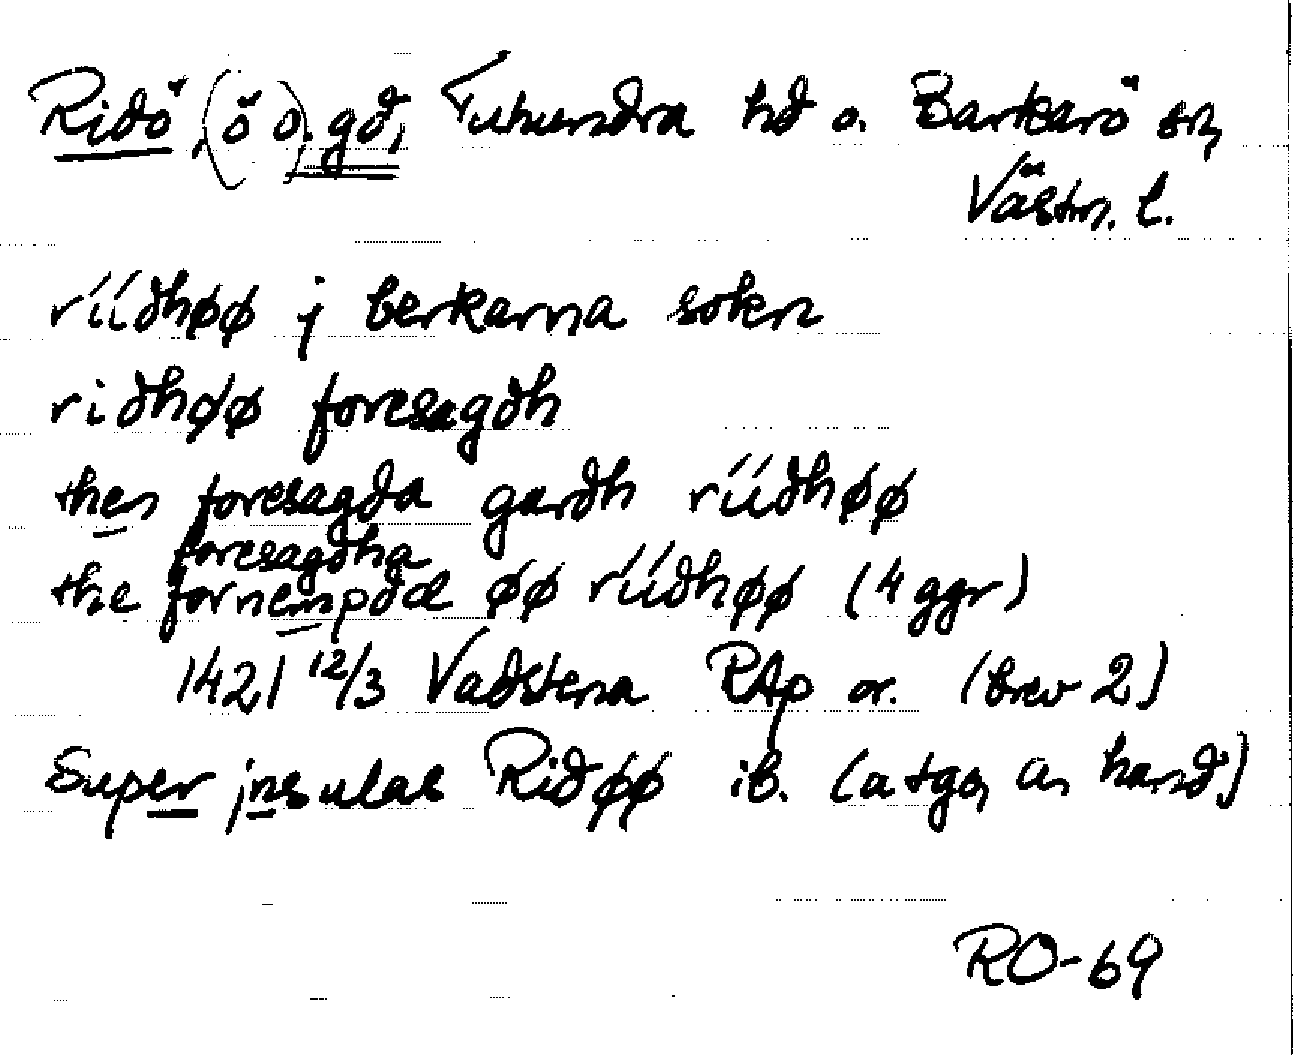 Ridö, (ö o). gd, Tuhundra hd o. Barkarö sn,
Västm. l.
ríídhøø j berkarna sokn
ridhøø foresagdh
then foresagda gardh ríídhøø
foresagdha
the fornempdæ øø ríídhøø (4 ggr)
1421 12/3 Vadstena RAp or. (brev 2)
Super jnsulae Ridøø ib. (a tgo, an hand.)
RO-69